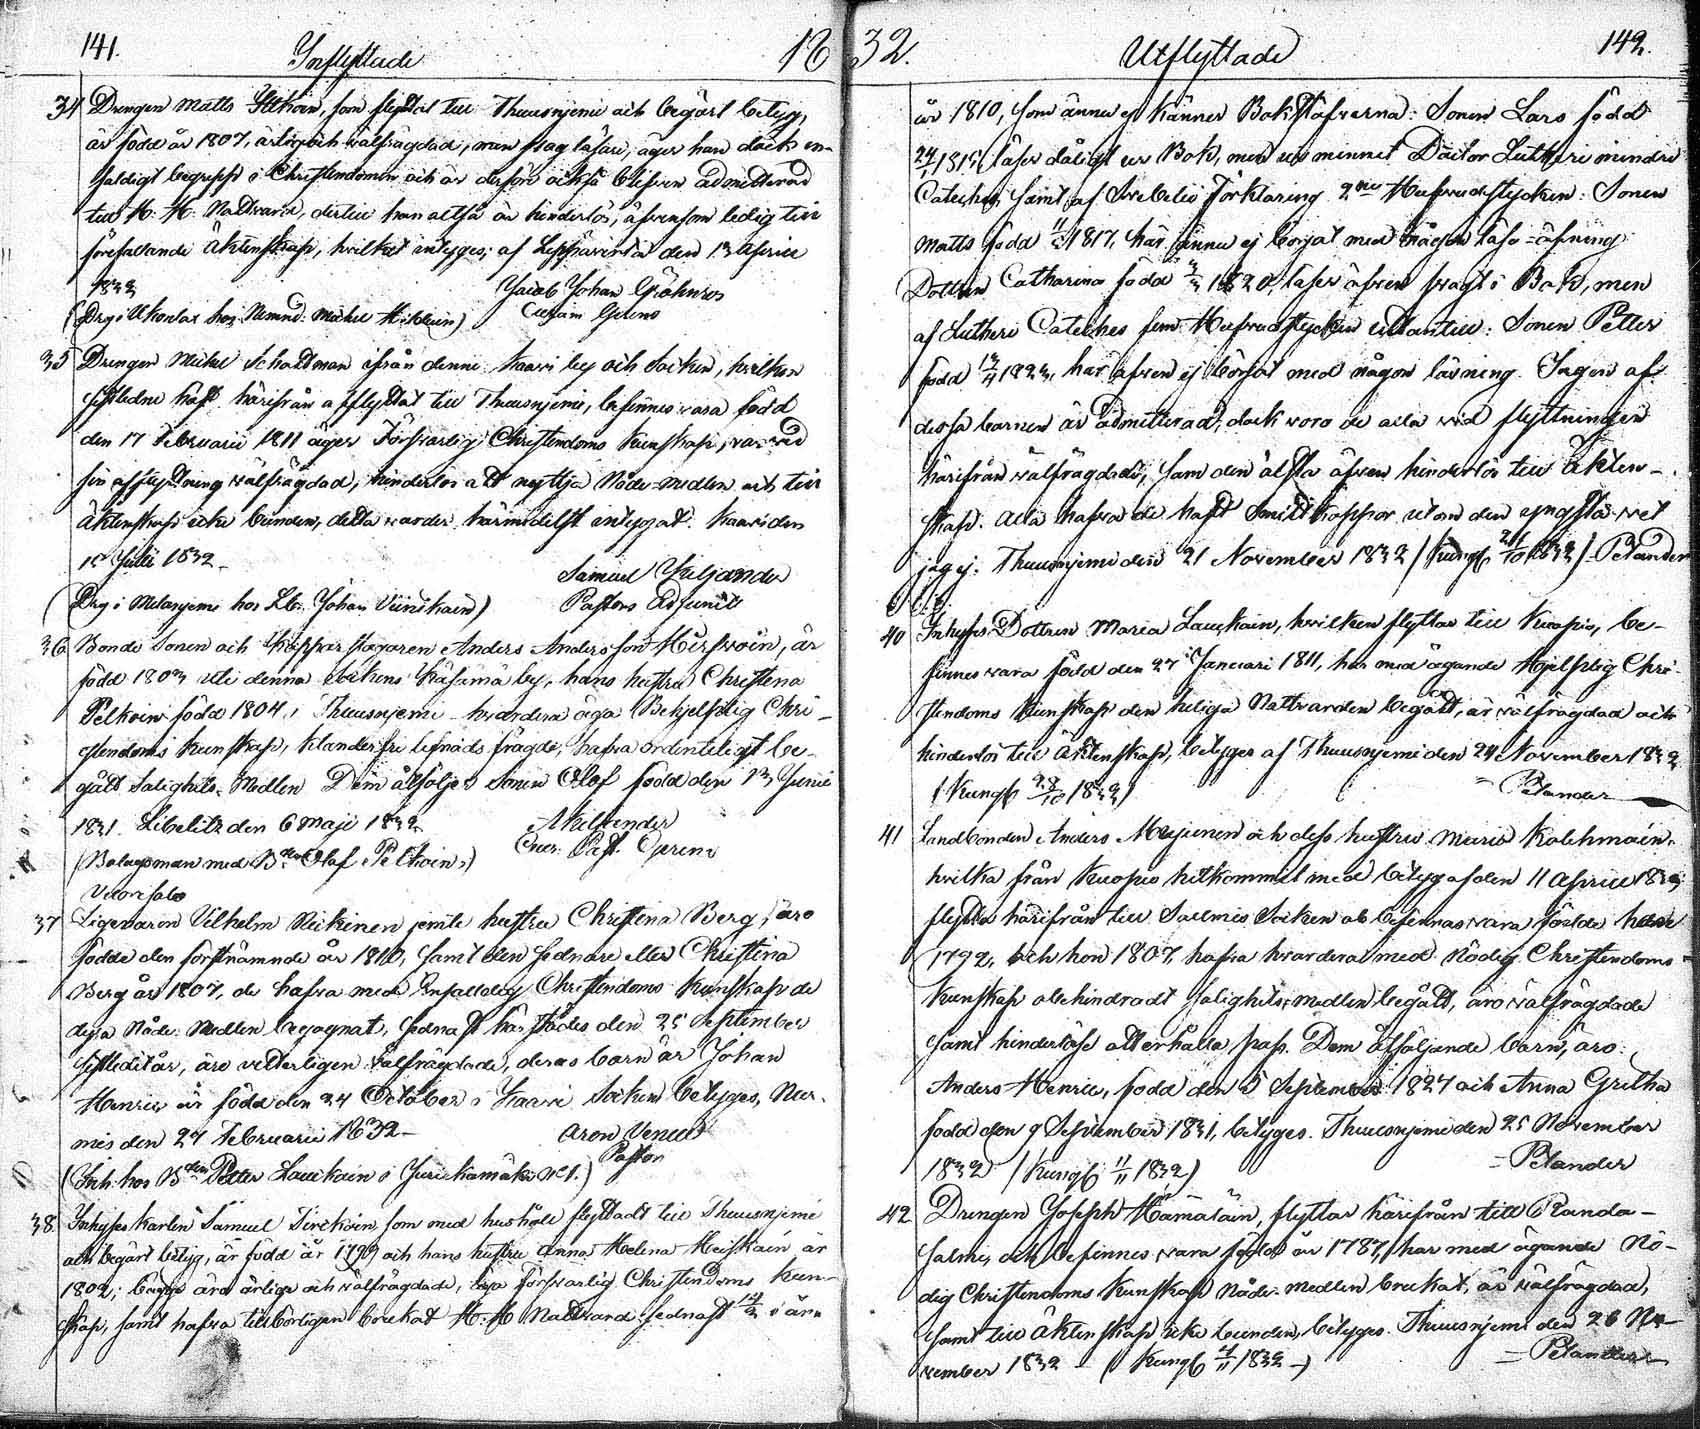 141. Inflyttade 18
34 Drengen Matts Ittkoin, som flyttat till Thuusnjemi och begärt betyg,
är född år 1807, ärlig och välfrägdad, man svag läsare, äger han dock en-
faldigt begrepp i Christendomen och är derföre också blifven admitterad
till H. H. Nattvard, dertill han altså är hinderlös, äfvensom ledig till
förefallande Äktenskap, hvilket intygas; af Leppävirta den 13 Aprill
1832 Jacob Johan Gråhnros
(Drg i Ukonlax hos Nemnd. Mickel Miklain)
35 Drengen Mickel Schadtman ifrån denna Kaavi by och Socken, hvilken
sistledne höst härifrån afflyttat till Thuusnjemi, befinnes vara född
den 17 Februarii 1811 äger Försvarlig Christendoms Kunskap, var vid
sin afflyttning välfrägdad, hinderlös att nyttja Nåde-medlen och till
Äktenskap icke bunden, detta varder härmedelst intygat. Kaavi den
1e Julii 1832 Samuel Yiljander
(Drg i Melanjemi hos Lb. Johan Väinikain) Pastors Adjunct
36 Bonde Sonen och Anders Andersson Hirvoin, är
född 1803 uti denna Sockens by, hans hustru Christena
Pelkoin född 1804, i Thuusnjemi hvardera äga Behjelplig Chri-
stendoms Kunskap, klanderfri lefnads frägde, hafva ordenteligt be-
gått Salighets Medlen Dem åtföljer Sonen Olof född den 13 Junii
1831. Libelitz den 6 Maji 1832
(Bolagsman med Bden Olof Pelkoin)
Vuorisalo
37 Vilhelm Nickinen jemte hustru Christena Berg, äro
födde den förstnämnde år 1810, samt den sednare eller Christina
Berg år 1807, de hafva med Enfalldig Christendoms Kunskap de
dyra Nåde Medlen begagnat, sednast här städes den 25 September
sistledit år, äro vitterligen välfrägdade, deras barn är Johan
Henric är född den 24 October i Kaavi Socken betygas, Nur-
mis den 27 Februarii 1832 Aron Venell
Pastor
(Inh. hos Bden Petter Laukain i Jurikamäki No 1.)
38 Inhyses karlen Samuel Tirckoin, som med hushåll flyttadt till Thuusnjemi
och begärt betyg, är född år 1799 och hans hustru Anna Helena Heiskain är
1802; begge äro ärliga och välfrägdade, äga försvarlig Christendoms Kun-
skap, samt hafva tillbörligen brukat H. H. Nattvard sednast i år
32. Utflyttade 142.
år 1810, som ännu ej känner Bokstäfverna: Sonen Lars född
1815, läser dåligt ur Bok, men ur minnet Doctor Lutheri mindre
Cateches, samt af Svebelii Förklaring 2ne Hufvudstycken: Sonen
Matts född 1817, har ännu ej börjat med någon läse-öfning
Dottren Catharina född 1820, läser äfven svagt i Bok, men
af Lutheri Cateches fem Hufvudstycken utantill: Sonen Petter
född 1823, har äfven ej börjat med någon läsning. Ingen af
dessa barnen är admitterad, dock voro de alla vid flyttningen
härifrån välfrägdade, samt den älsta äfven hinderlös till Äkten-
skap. Alla hafva de haft Smittkoppor, utom den yngsta vet
jag ej. Thuusnjemi den 21 November 1832 / Kungf 1832) Pelander
40 Inhyses Dottren Maria Laukain, hvilken flyttar till Kuopio, be-
finnes vara född den 27 Januari 1811, har med ägande Hjelplig Chri-
stendoms Kunskap den heliga Nattvarden begått, är välfrägdad och
hinderlös till Äktenskap, betygas af Thuusnjemi den 24 November 1832
(Kungf 28/10 1832) Pelander
41 Landbonden Anders Meujunen och dess hustru Maria Kolehmain,
hvilka från Kuopio hitkommit med betyg af den 11 Aprill 1832
flytta härifrån till Suelmis Socken och befinnas vara födde han
1792, och hon 1807, hafva hvardera med Nödig Christendoms
Kunskap obehindradt salighets medlen begått, äro välfrägdade
samt hinderlöse att erhålla pass. Dem åtföljande barn, äro:
Anders Henric, född den 5 September 1827 och Anna Gretha
född den 9 September 1831, betygas. Thuusnjemi den 25 November
1832 (Kungf 11/11 1832) Pelander
42 Drengen Joseph Hämäläin, flyttar härifrån till Randa-
salmi, och befinnes vara född år 1787, har med ägande Nö-
dig Christendoms Kunskap Nåde-medlen brukat, är välfrägdad,
samt till Äktenskap icke bunden, betygas. Thuusnjemi den 26 No-
vember 1832 (Kungf 4/11 1832) Pelander